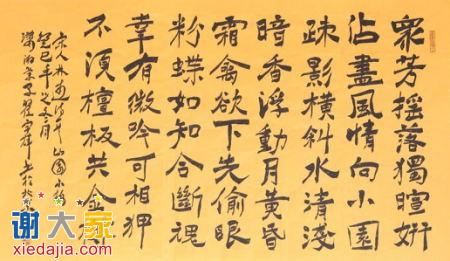 眾芳摇落獨暄妍
佔盡風情向小園
疎影橫斜水清淺
暗香浮動月黄昏
霜禽欲下先偷眼
粉蝶如知合斷魂
幸有微吟可相狎
不須檀板共金樽
宋人林逋诗 山園小梅
癸巳年之五月
谢大家
xiedajia.com